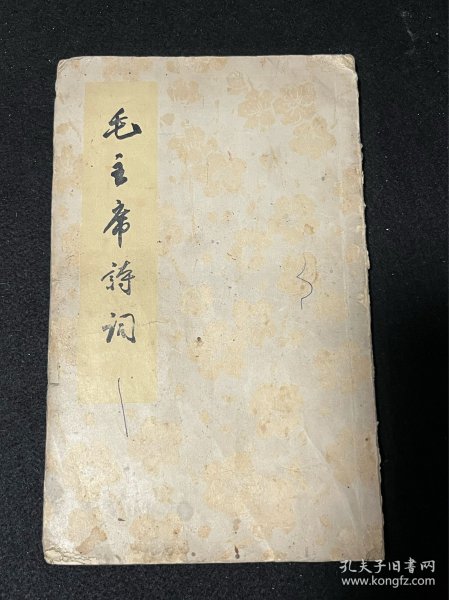 毛主席詩词
孔夫子旧书网
www.kongfz.com